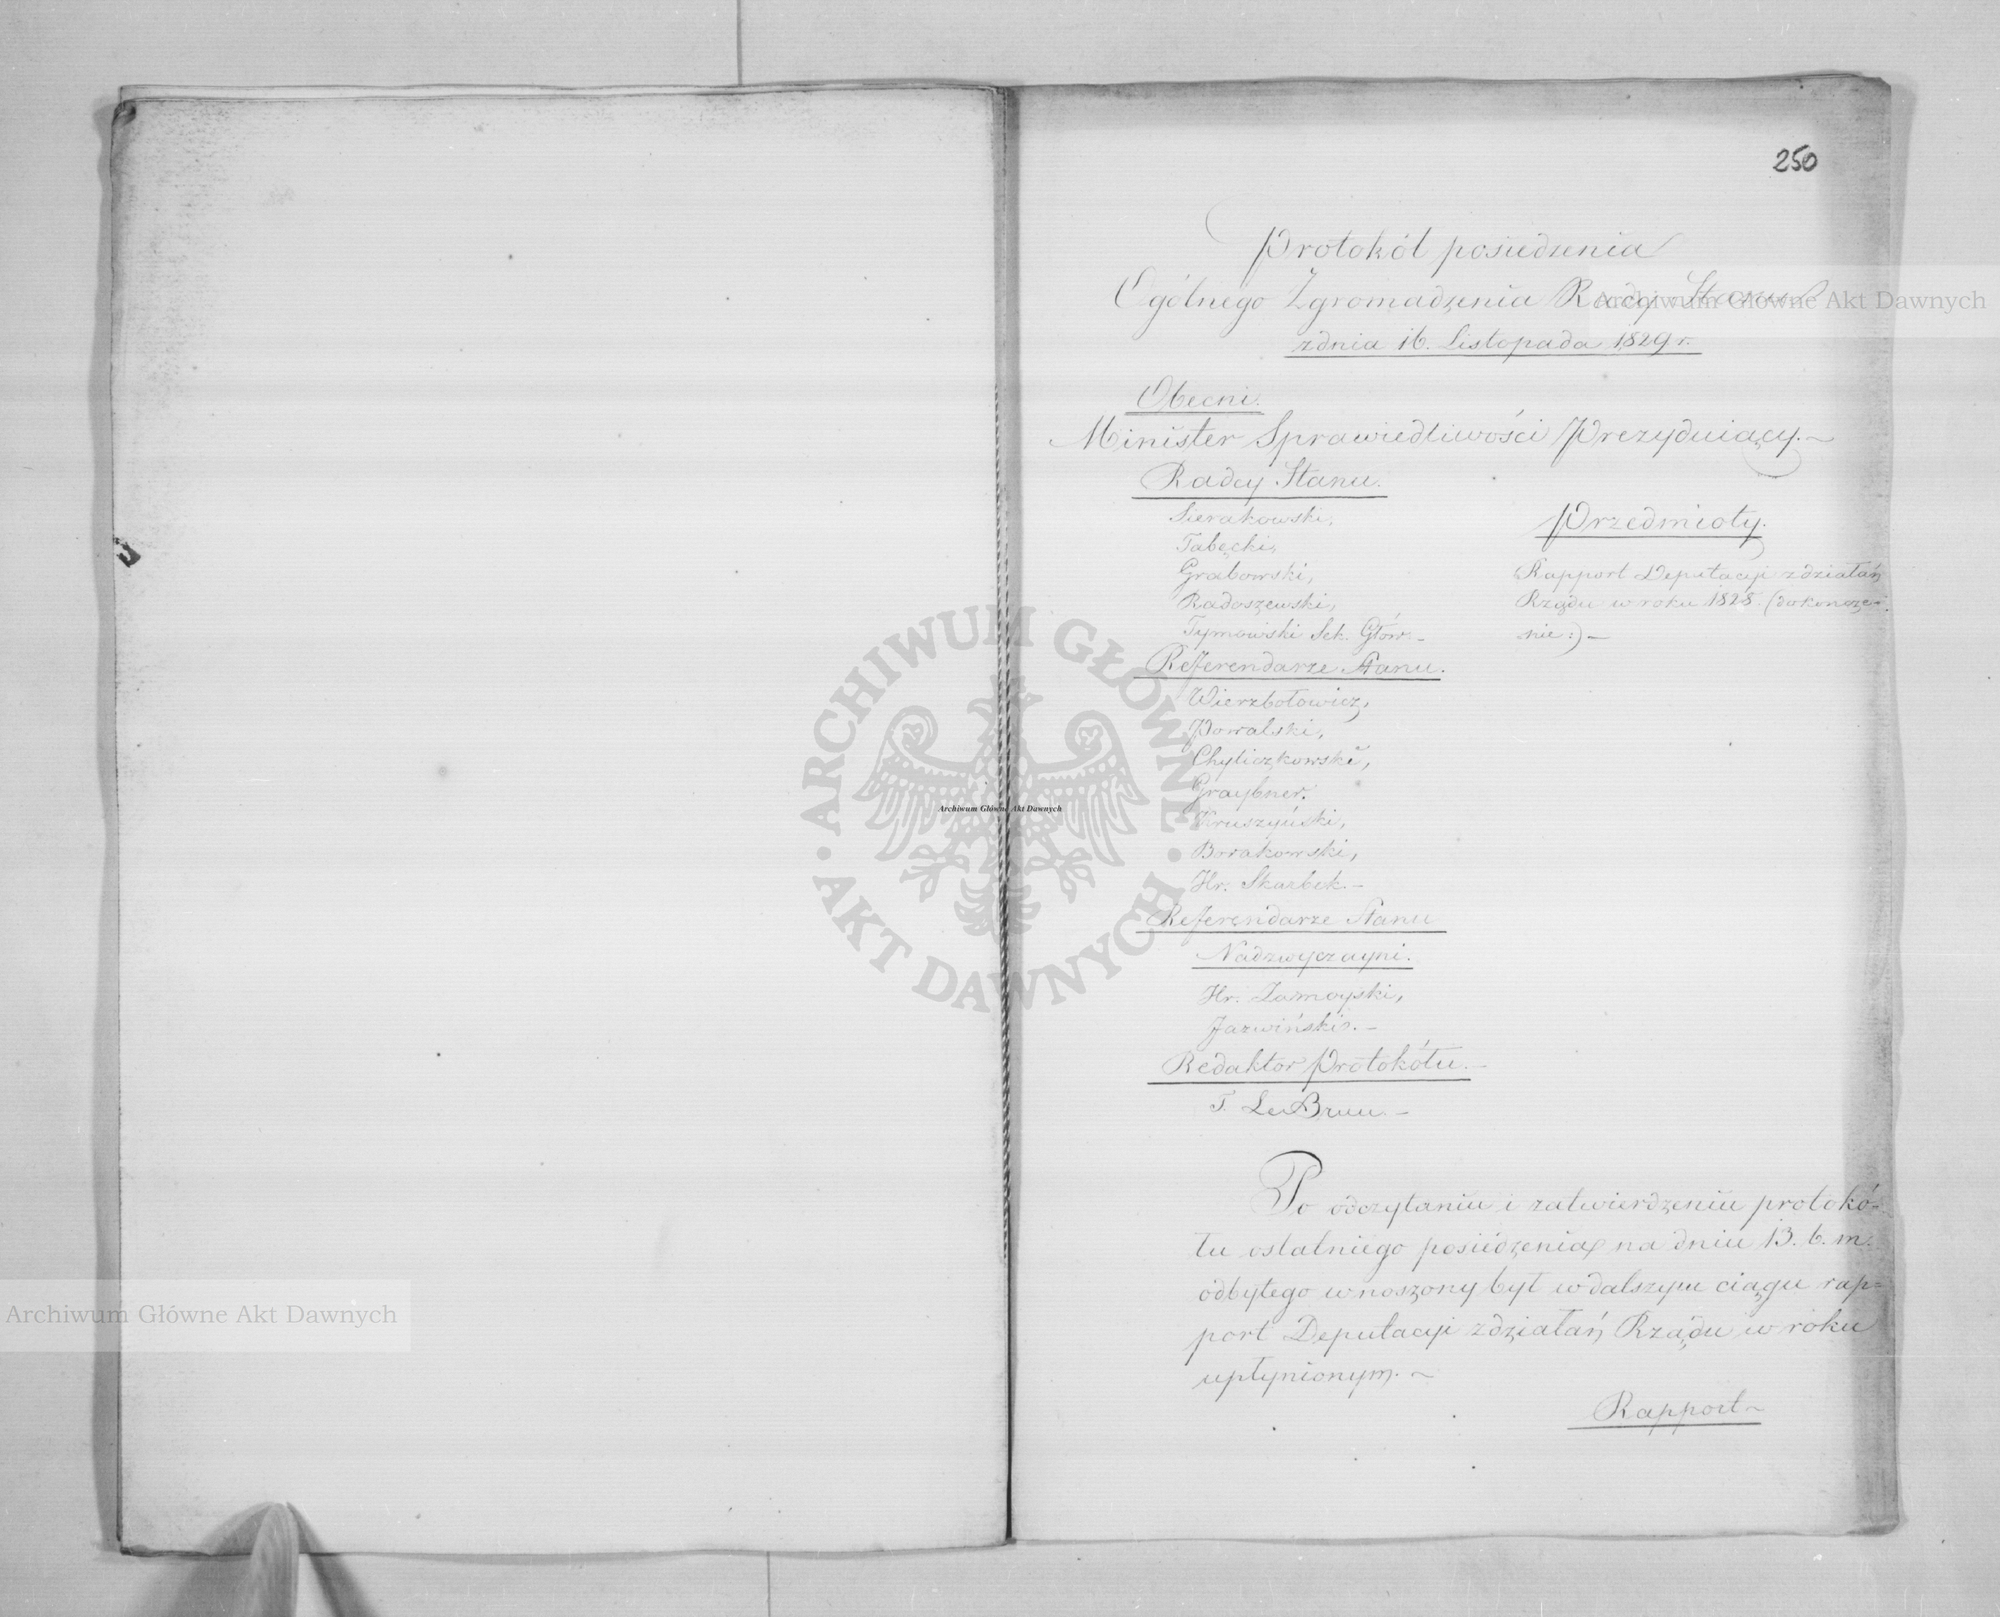 250
Protokół posiedzenia
Ogólnego Zgromadzenia Rady Stanu
z dnia 16. Listopada 1829 r.
Obecni.
Minister Sprawiedliwości Prezyduiący. ~
Radcy Stanu.
Sierakowski,
Tabęcki,
Grabowski,
Radoszewski,
Tymowski Sek. Głów. –
Przedmioty.
Rapport Deputacyi z działań
Rządu w roku 1828. (dokończe-
nie:) –
Referendarze Stanu.
Wierzbołowicz,
Powalski,
Chyliczkowski,
Graybner.
Kruszyński,
Borakowski,
Hr. Skarbek. –
Referendarze Stanu
Nadzwyczayni.
Hr. Zamoyski,
Jazwiński. –
Redaktor Protokółu. –
T. Le Brun. –
Po odczytaniu i zatwierdzeniu protokó-
łu ostatniego posiedzenia na dniu 13. b. m.
odbytego wnoszony był w dalszym ciągu rap=
port Deputacyi z działań Rządu w roku
upłynionym. ~
Rapport ~
Archiwum Główne Akt Dawnych
Archiwum Główne Akt Dawnych
Archiwum Główne Akt Dawnych
ARCHIWUM GŁÓWNE
AKT DAWNYCH